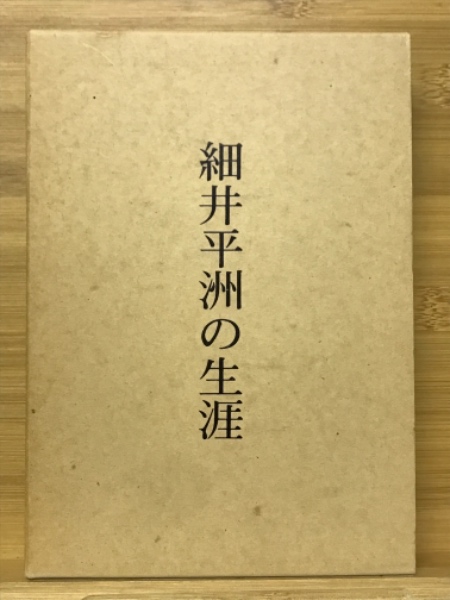 細井平洲の生涯